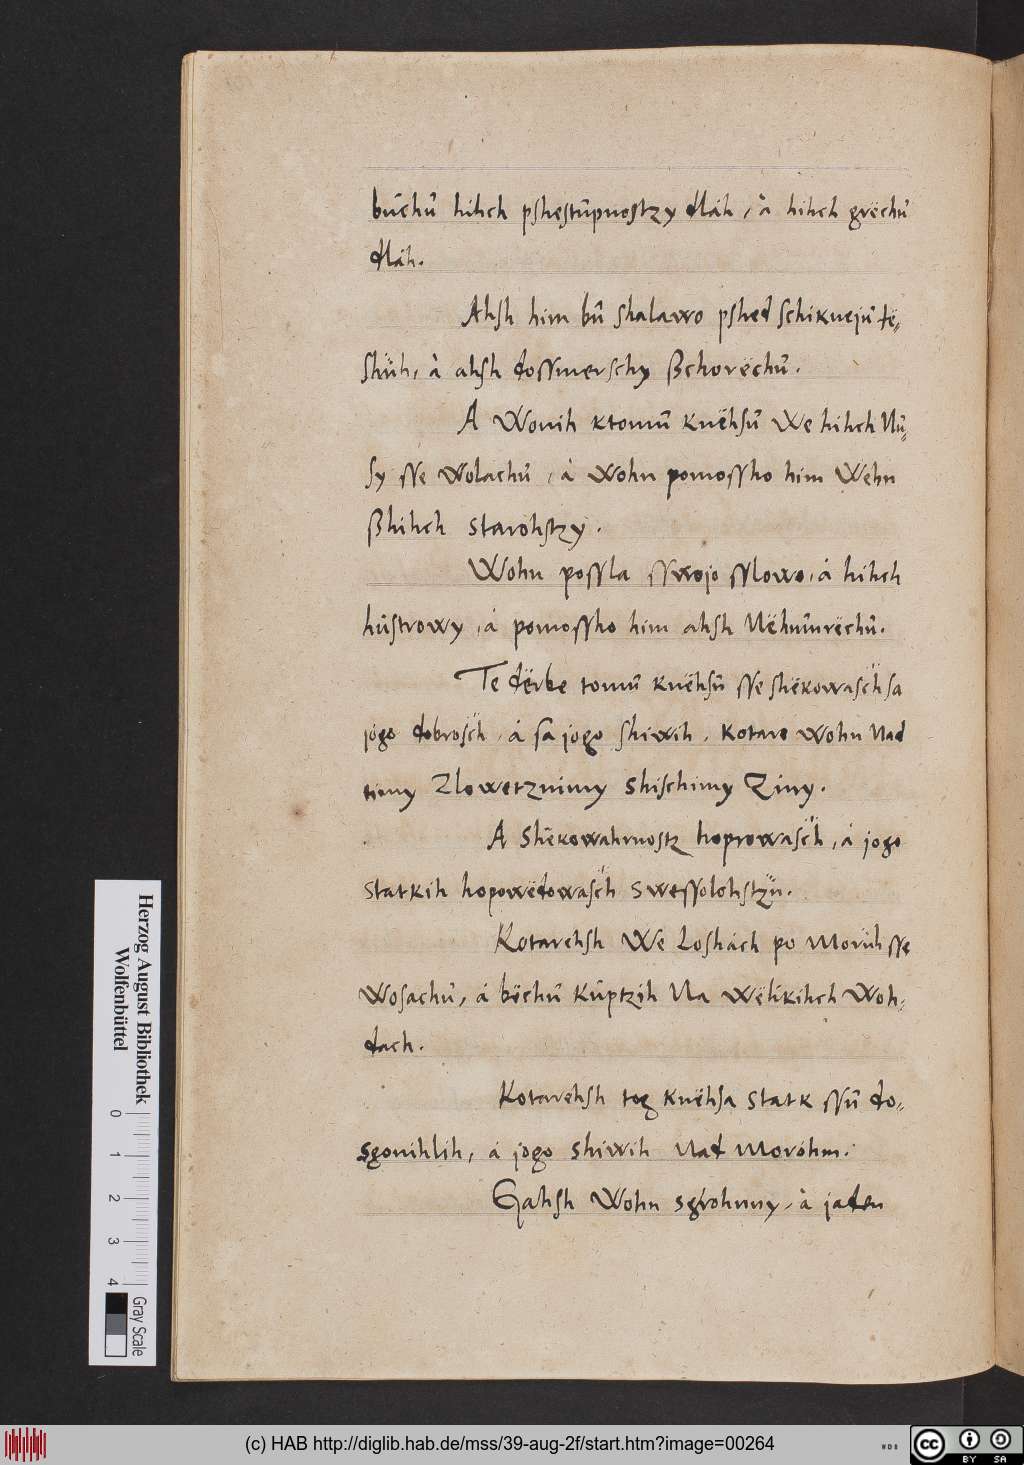 buchū hihch pshestūpnostzy dláh, à hihch grëchū
dláh.
Ahsh him bū shalawo pshed schiknejū të-
shüh, à ahsh dossmerschy ßchorëchū.
A Wonih ktomū knëhsū We hihch Nū-
sy sse wolachū, à wohn pomossho him Wehn
ßhihch starohstzy.
Wohn possla sswojo sslowo, à hihch
hūstrowy, à pomossho him ahsh Nëhūmrëchū.
Te dërbe tomū knëhsū sse shëkowasch sa
jogo dobrosch, à sa jogo shiwih, kotare wohn Nad
timy Zlowetznimy shischimy Ziny.
A Shëkowahrnostz hoprowasch, à jogo
statkih hopowëdowasch swessolohstzu.
Kotarehsh We Loshach po Moruh sse
wosachū, à bëchū kūptzih Na wëlikihch Woh-
dach.
Kotarehsh tog knëhsa statk ssū do-
sgonihlih, à jogo shiwih Nad Moróhm.
Gahsh Wohn sgrohnny, à jaden
Herzog August Bibliothek
Wolfenbüttel
0 1 2 3 4
Gray Scale
(c) HAB http://diglib.hab.de/mss/39-aug-2f/start.htm?image=00264
WDB
cc BY SA